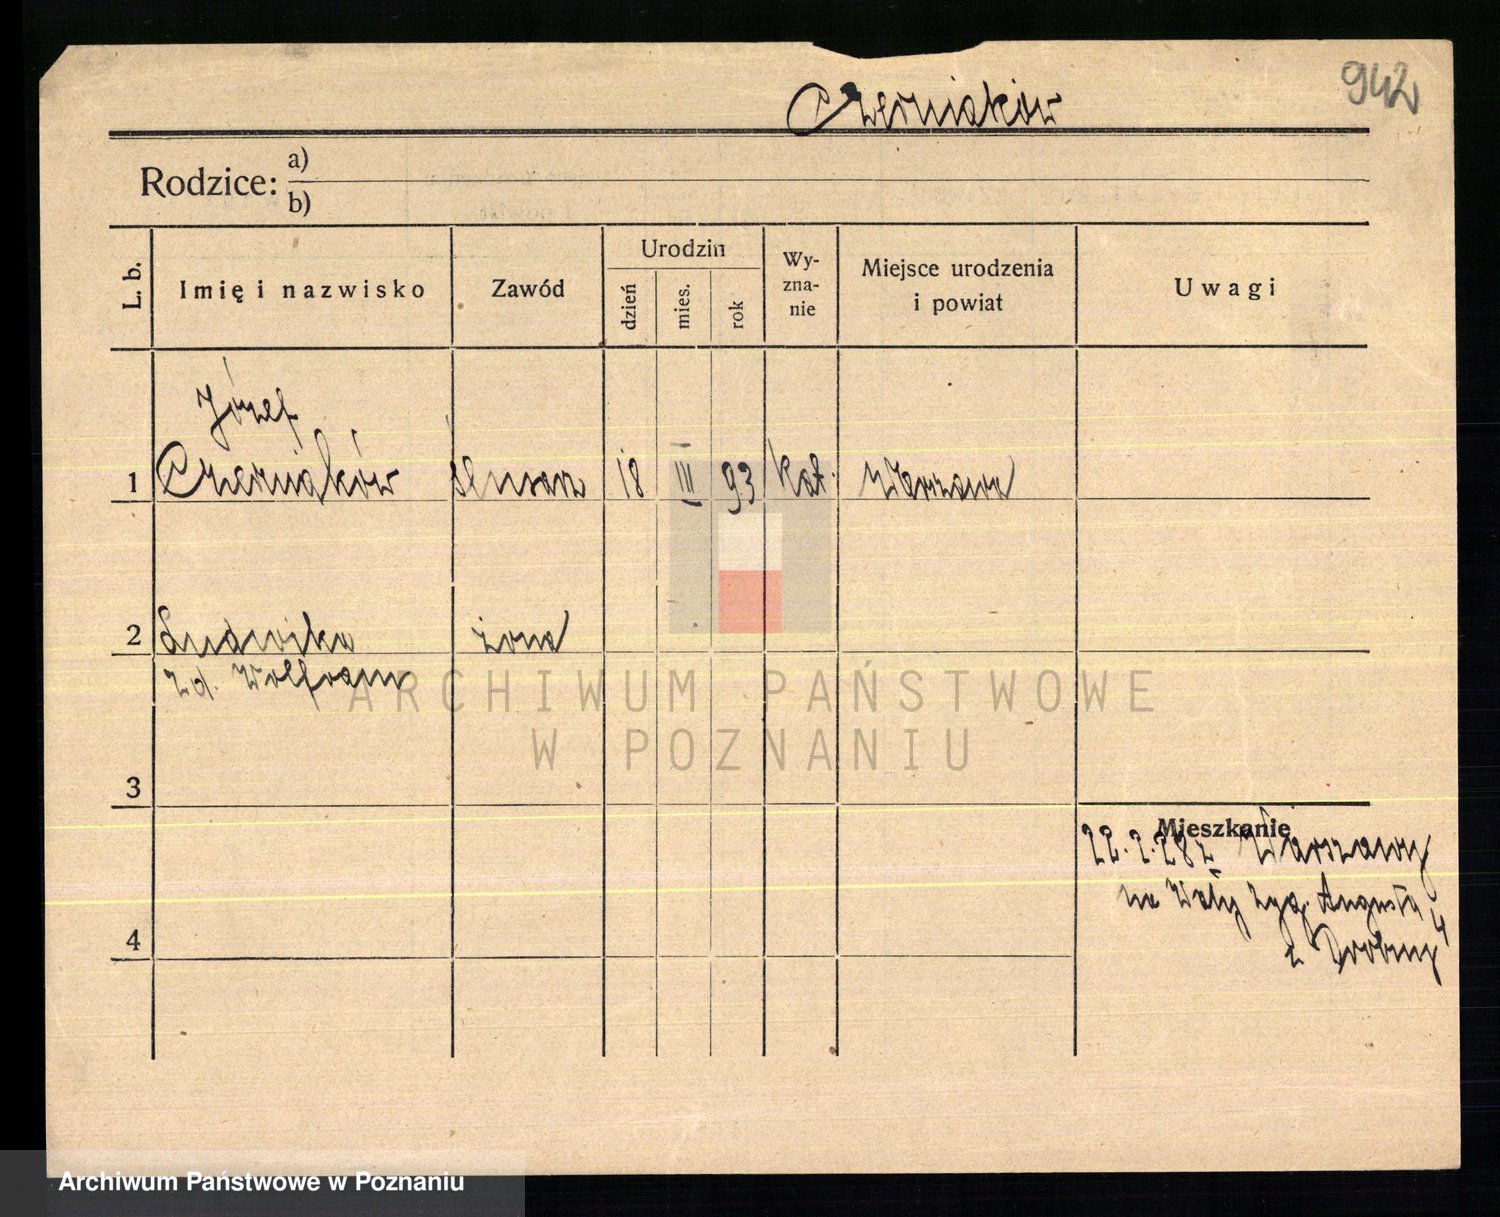 942
Czerniaków
Rodzice: a)
b)
L. b.
Imię i nazwisko
Zawód
Urodzin
dzień
mies.
rok
Wy-
zna-
nie
Miejsce urodzenia
i powiat
Uwagi
Józef
1 Czerniaków ślusarz 18 III 93 kat. Warszawa
2 Ludwika żona
z d. Wolfram
3
Mieszkanie
22.2.28 z Warszawy
na Wały Zyg. Augusta 4
4
ARCHIWUM PAŃSTWOWE
W POZNANIU
Archiwum Państwowe w Poznaniu